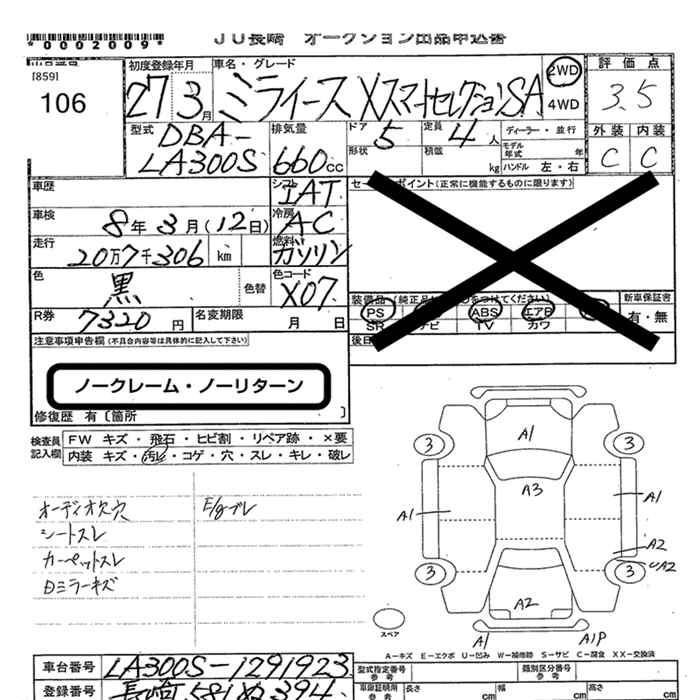 JU長崎 オークション出品申込書
*0002009*
[859]
106
初度登録年月 車名・グレード 2WD 4WD 評価点
27 3月 ミライース XスマートセレクションSA 3.5
型式 排気量 ドア 定員 ディーラー・並行 外装 内装
DBA-
LA300S 660cc 5 4人 C C
形状 積載 kg モデル年式 年
ハンドル 左・右
車歴 シフト IAT セールスポイント(正常に機能するものに限ります)
車検 8年3月(12日) 冷房 AC
走行 20万7千306 km 燃料 ガソリン
色 黒 色替 色コード X07
装備品 新車保証書
PS ABS エアB 有・無
SR ナビ TV カワ
R券 7320円 名変期限 月 日
注意事項申告欄(不具合内容等は具体的に記入して下さい)
ノークレーム・ノーリターン
修復歴 有〔箇所 〕
検査員記入欄 FW キズ・飛石・ヒビ割・リペア跡・×要
内装 キズ・汚れ・コゲ・穴・スレ・キレ・破レ
オーディオ欠穴 E/gブレ
シートスレ
カーペットスレ
ミラーキズ
A1
3 3
A3
A1 A1
A2
UA2
3 3
A2
スペア
A1 A1P
A-キズ E-エクボ U-凹み W-補修跡 S-サビ C-腐食 XX-交換済
車台番号 LA300S-1291923 型式指定番号 参考 類別区分番号 参考
登録番号 長崎 581 394 車庫証明用 参考 長さ cm 幅 cm 高さ cm